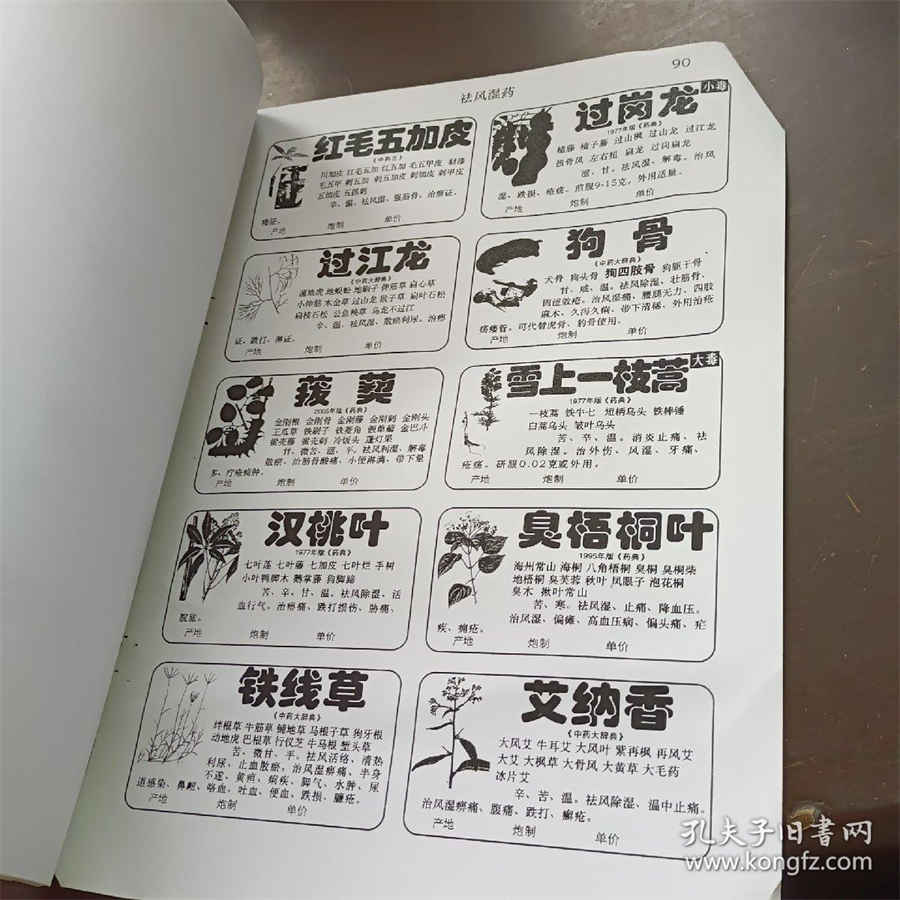 90
祛风湿药
红毛五加皮
《中药志》
川加皮 红毛五加 红五加 毛五甲皮 制漆
毛五甲 刺五加 刺五加皮 刺加皮 刺甲皮
五加皮 五抓刺
辛、温、祛风湿、强筋骨、治痹证、
痿证。
产地 炮制 单价
过岗龙 小毒
1977年版《药典》
榼藤 榼子藤 过山枫 过山龙 过江龙
扭骨风 左右扭 扁龙 过岗扁龙
涩、甘。祛风湿、解毒。治风
湿、跌损、疮疡。煎服9-15克，外用适量。
产地 炮制 单价
过江龙
《中药大辞典》
地蜈蚣 地刷子 伸筋草
小伸筋 木金草 过山龙 猴子草 扁叶石松
扁枝石松 公鱼秧草 乌龙不过江
辛、温。祛风湿、散瘀利尿。治痹
证、跌打、淋证。
产地 炮制 单价
狗骨
《中药大辞典》
犬骨 狗头骨 狗四肢骨 狗躯干骨
甘、咸、温。祛风除湿、壮筋骨、
治风湿痛、腰腿无力、四肢
麻木、久泻久痢、带下清稀，外用治疮
疡瘘管。可代替虎骨、豹骨使用。
产地 炮制 单价
菝葜
2005年版《药典》
金刚根 金刚骨 金刚藤 金刚刺 金刚头
王瓜草 铁刷子 铁菱角 假萆薢 金巴斗
冷饭头 蓬灯果
甘、微苦、涩、平。祛风利湿、解毒
散瘀，治筋骨酸痛、小便淋漓、带下量
多、疔疮痈肿。
产地 炮制 单价
雪上一枝蒿 大毒
1977年版《药典》
一枝蒿 铁牛七 短柄乌头 铁棒锤
白蒿乌头 皱叶乌头
苦、辛、温。消炎止痛、祛
风除湿。治外伤、风湿、牙痛、
疮疡。研服0.02克或外用。
产地 炮制 单价
汉桃叶
1977年版《药典》
七叶莲 七叶藤 七加皮 七叶烂 手树
小叶鸭脚木 鹅掌藤 狗脚蹄
苦、辛、甘、温。祛风除湿、活
血行气。治痹痛、跌打损伤、胁痛、
脘痛。
产地 炮制 单价
臭梧桐叶
1995年版《药典》
海州常山 海桐 八角梧桐 臭桐 臭桐柴
地梧桐 臭芙蓉 秋叶 凤眼子 泡花桐
臭木 楸叶常山
苦、寒。祛风湿、止痛、降血压。
治风湿、偏瘫、高血压病、偏头痛、疟
疾、痈疮。
产地 炮制 单价
铁线草
《中药大辞典》
绊根草 牛筋草 铺地草 马根子草 狗牙根
动地虎 巴根草 行仪芝 牛马根 蟹头草
苦、微甘、平。祛风活络、清热
利尿、止血散瘀。治风湿痹痛、半身
不遂、黄疸、痢疾、脚气、水肿、尿
道感染、鼻衄、咯血、吐血、便血、跌损、臁疮。
产地 炮制 单价
艾纳香
《中药大辞典》
大风艾 牛耳艾 大风叶 紫再枫 再风艾
大艾 大枫草 大骨风 大黄草 大毛药
冰片艾
辛、苦、温。祛风除湿、温中止痛。
治风湿痹痛、腹痛、跌打、癣疮。
产地 炮制 单价
孔夫子旧书网
www.kongfz.com